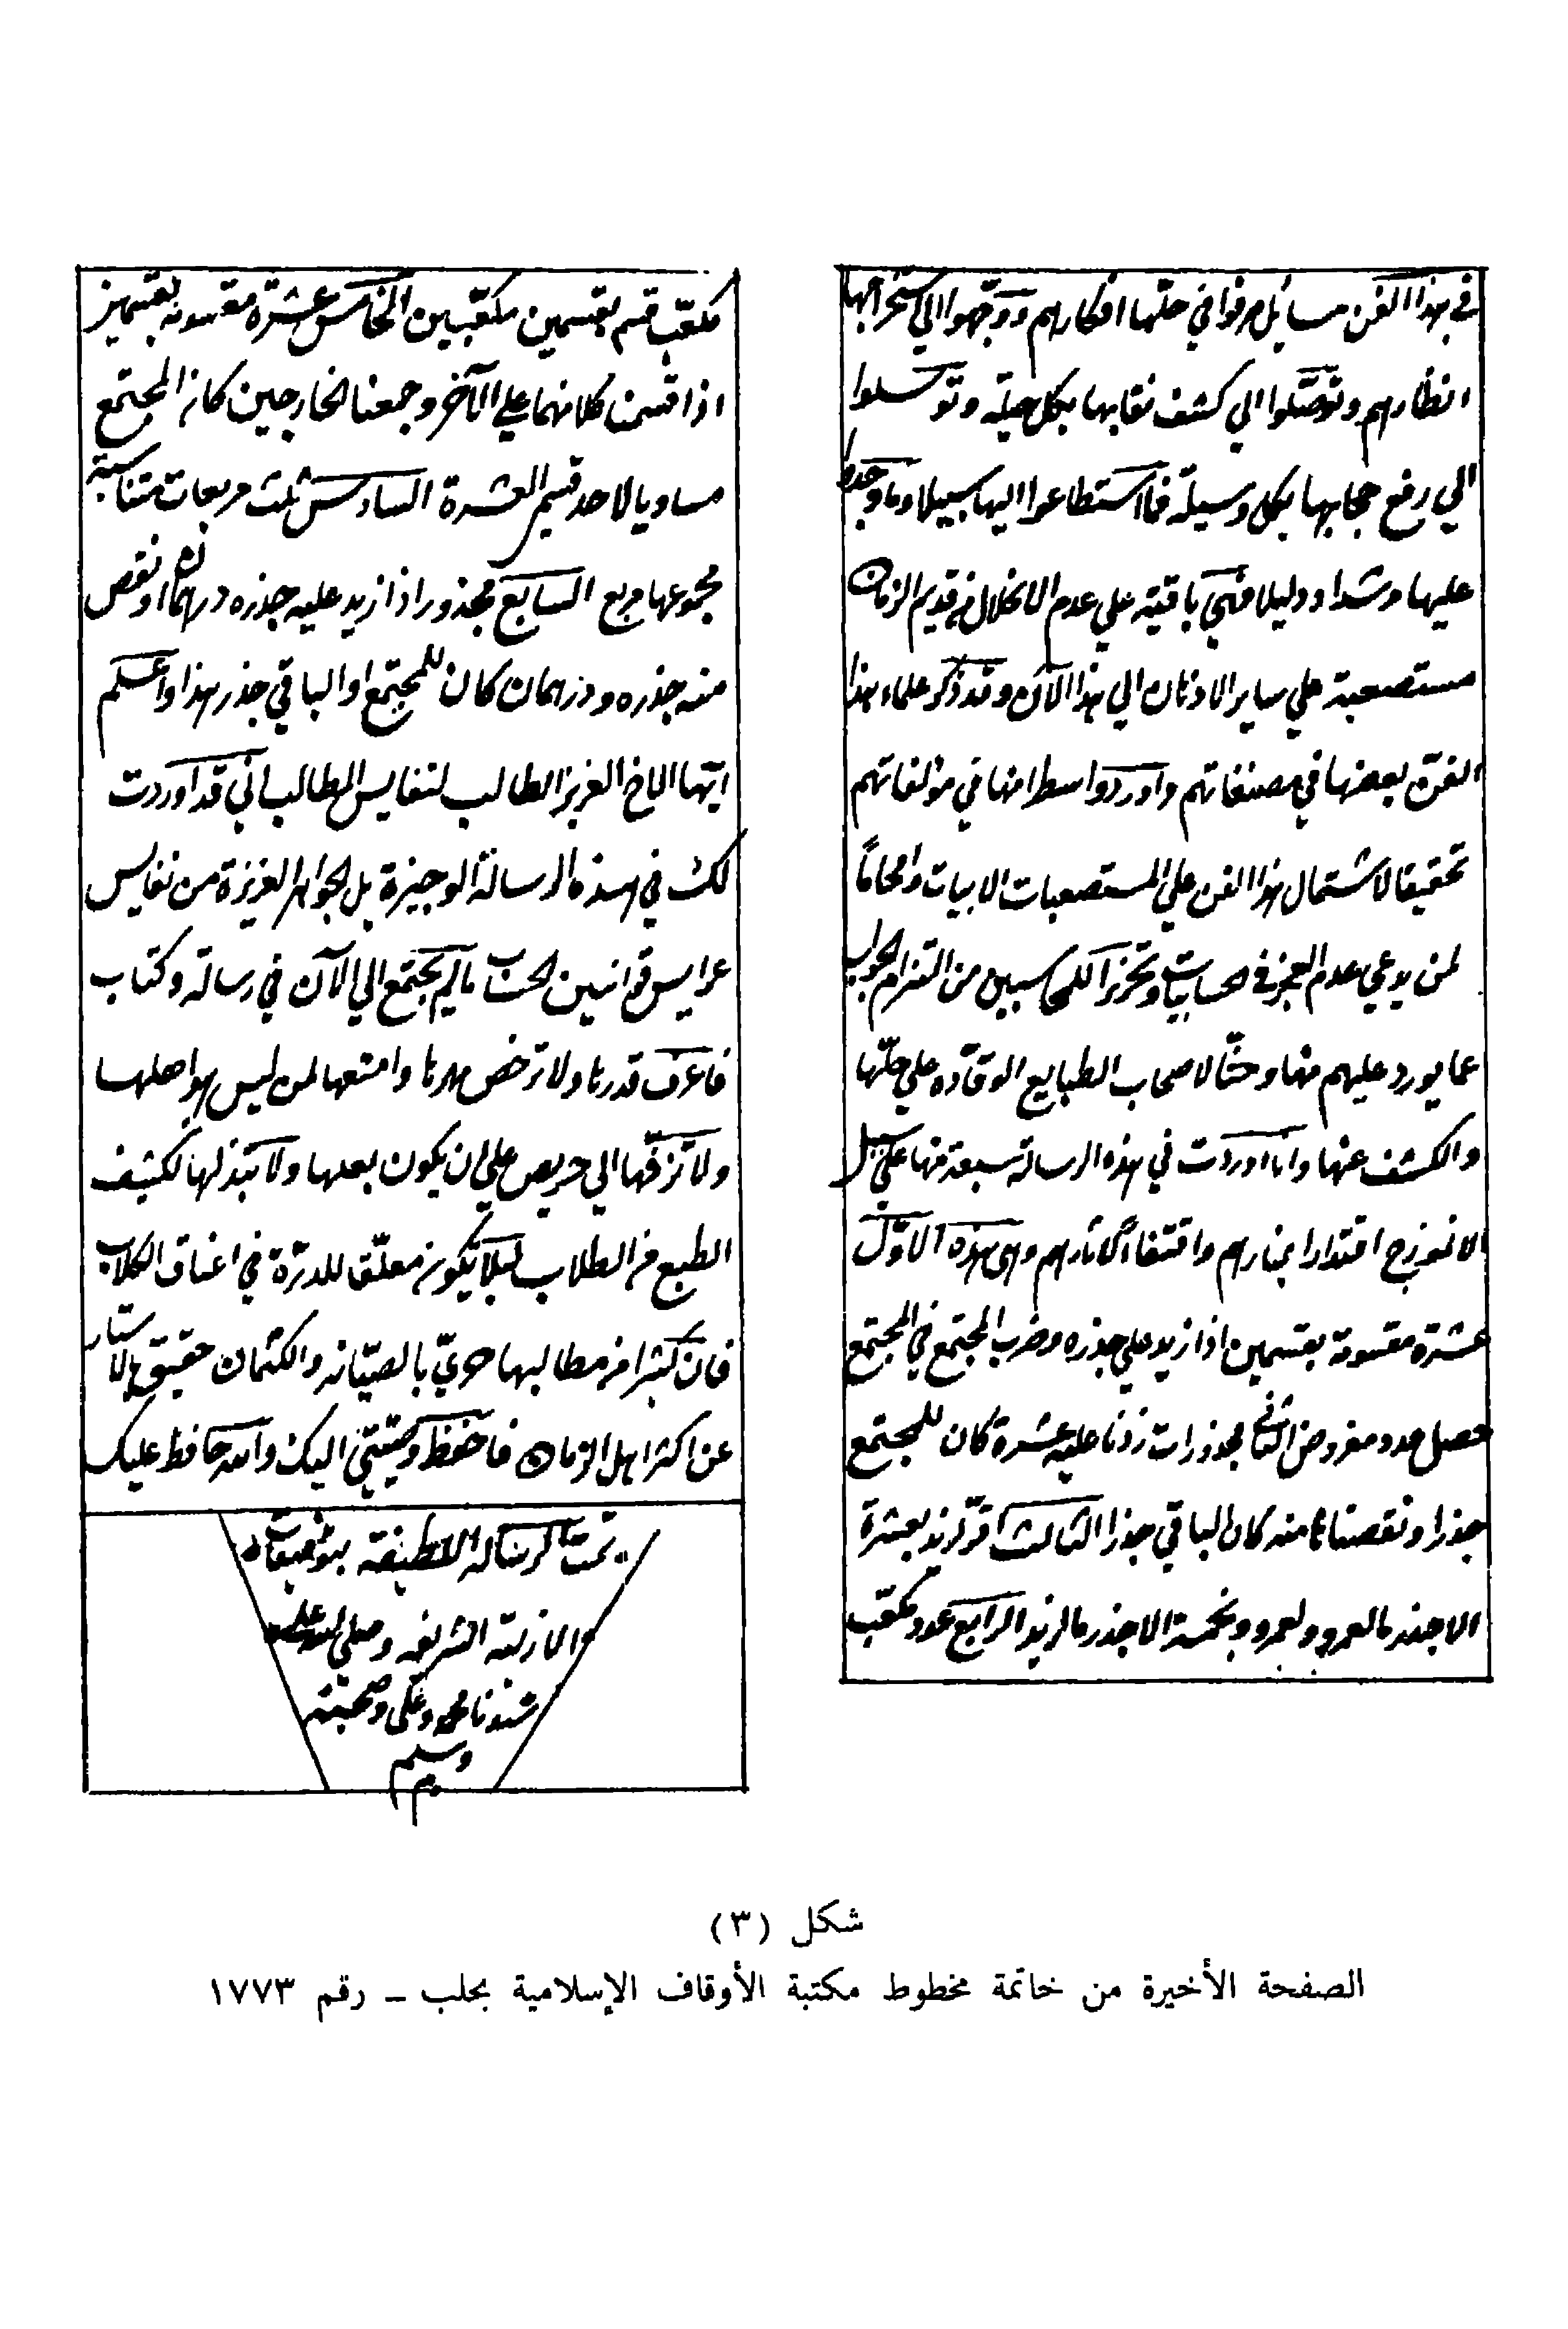 في هذا الفن مسايل صرفوا في حلها افكارهم ووجّهوا الي استخراجها
انظارهم وتوصّلوا الي كشف نقابها بكل حيلة وتوسلوا
الي رفع حجابها بكل وسيلة فما استطاعوا اليها سبيلا وما وجدوا
عليها مرشدا ودليلا فهي باقية علي عدم الانحلال من قديم الزمان
مستصعبة علي ساير الاذهان الي هذا الآن وقد ذكر علماء هذا
الفن بعضها في مصنفاتهم واوردوا سطرا منها في مؤلفاتهم
تحقيقا لاشتمال هذا الفن علي المستصعبات الابيات وافحاماً
لمن يدعي عدم العجز في الحسابيات وتحذيرا للمحاسبين من التزام الجواب
عما يورد عليهم منها وحثّا لاصحاب الطبايع الوقّاده علي حلّها
والكشف عنها وانا اوردت في هذه الرسالة سبعة منها علي سبيل
الانموذج اقتداءا بمنارهم واقتفاءً لاثارهم وهي هذه الاوّل
عشرة مقسومة بقسمين اذا زيد علي جذره وضرب المجتمع في المجتمع
حصل عدد مفروض الثاني مجذورات زدنا عليه عشرة كان للمجتمع
جذرا ونقصناها منه كان الباقي جذرا الثالث اقرّ لزيد بعشرة
الا جذر ما لعمرو ولعمرو وبخمسة الا جذر ما لزيد الرابع عدد مكعّب
مكعّب قسم بقسمين مكعّبين الخامس عشرة مقسومة بقسمين
اذا قسمنا كلا منهما علي الآخر وجمعنا الخارجين كان المجتمع
مساويا لاحد قسمي العشرة السادس ثلث مربعات متناسبة
مجموعها مربع السابع مجذور اذا زيد عليه جذره ودرهمان او نقص
منه جذره ودرهمان كان للمجتمع او الباقي جذر هذا واعلم
ايّها الاخ العزيز الطالب لنفايس المطالب اني قد اوردت
لك في هذه الرسالة الوجيزة بل الجواهر العزيزة من نفايس
عرايس قوانين الحساب ما لم يجتمع الي الآن في رسالة وكتاب
فاعرف قدرها ولا ترخص مهرها وامنعها لمن ليس هو اهلها
ولا تزفّها الي حريص علي ان يكون بعلها ولا تبذلها لكثيف
الطبع من الطلاب ليلا تكون معلّق للدرّة في اعناق الكلاب
فان كثيرا من مطالبها حريّ بالصيّانه والكتمان حقيق بالاستتار
عن اكثر اهل الزمان فاحفظ وصيّتي اليك والله حافظ عليك
تمت الرسالة اللطيفة بتوفيقات
الازلية الشريفه وصلي الله علي
سيدنا محمد وعلى وصحبته
وسلم
م
شكل (٣)
الصفحة الأخيرة من خاتمة مخطوط مكتبة الأوقاف الإسلامية بحلب ـ رقم ١٧٧٣